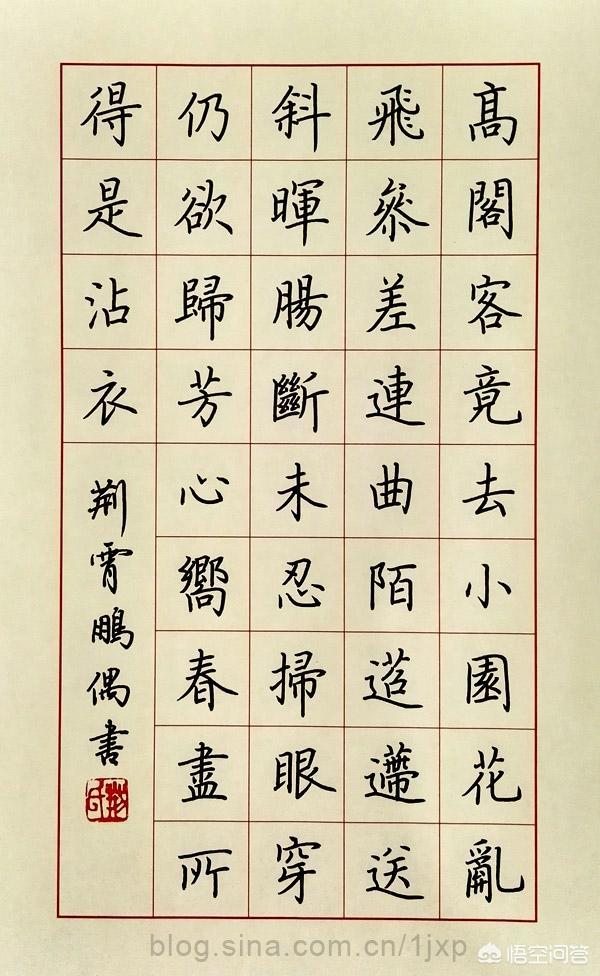 髙閣客竟去小園花亂
飛叅差連曲陌迢遰送
斜暉腸斷未忍掃眼穿
仍欲歸芳心嚮春盡所
得是沾衣
荆霄鵬偶書
blog.sina.com.cn/1jxp
悟空问答